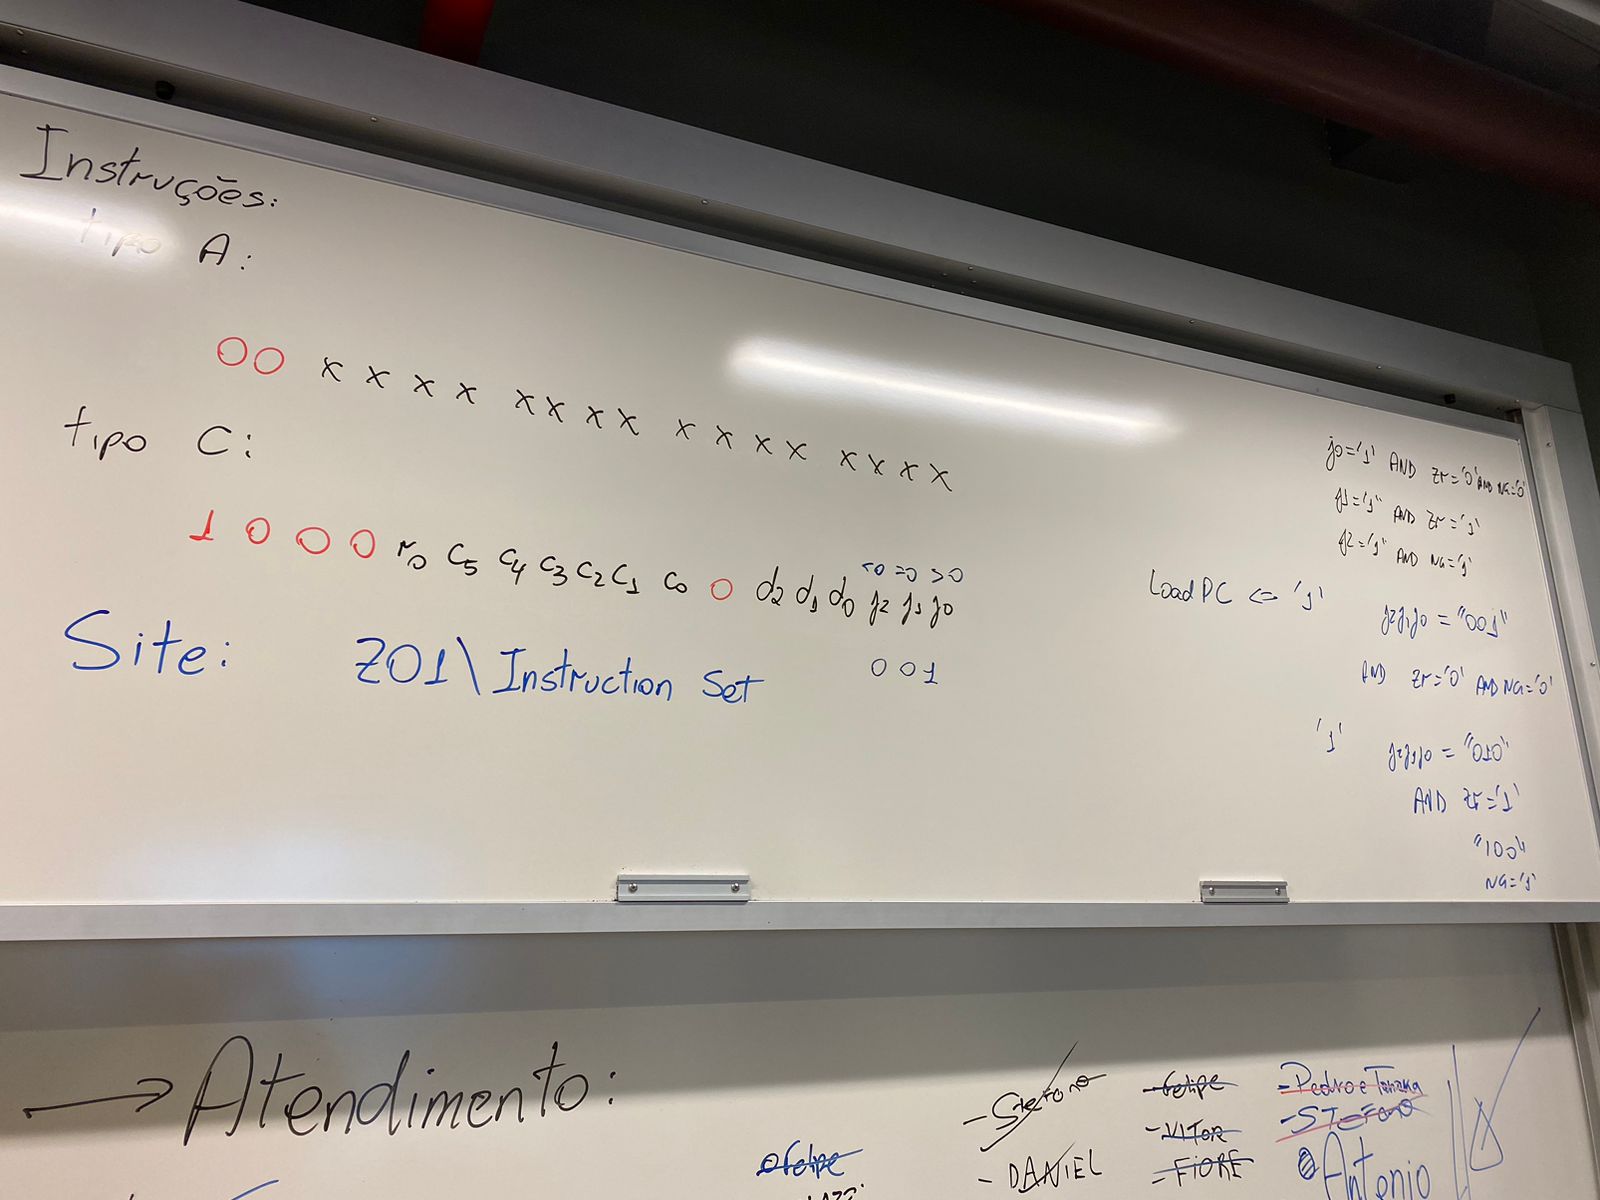 Instruções:
tipo A:
00 xxxx xxxx xxxx xxxx
tipo C:
1 0 0 0 r0 c5 c4 c3 c2 c1 c0 0 d2 d1 d0 j2 j1 j0
<0 =0 >0
0 0 1
Site: Z01\Instruction Set
j0='1' AND zr='0' AND NG='0'
j1='1" AND zr='1'
j2='1" AND NG='1'
Load PC <= '1' j2j1j0 = "001"
AND zr='0' AND NG='0'
'1' j2j1j0 = "010"
AND zr='1'
"100"
NG='1'
→ Atendimento:
- Stefano
- DANIEL
- Felipe
- VITOR
- FIORE
- Pedro e Tanaka
- STEFANO
Antonio
Felipe